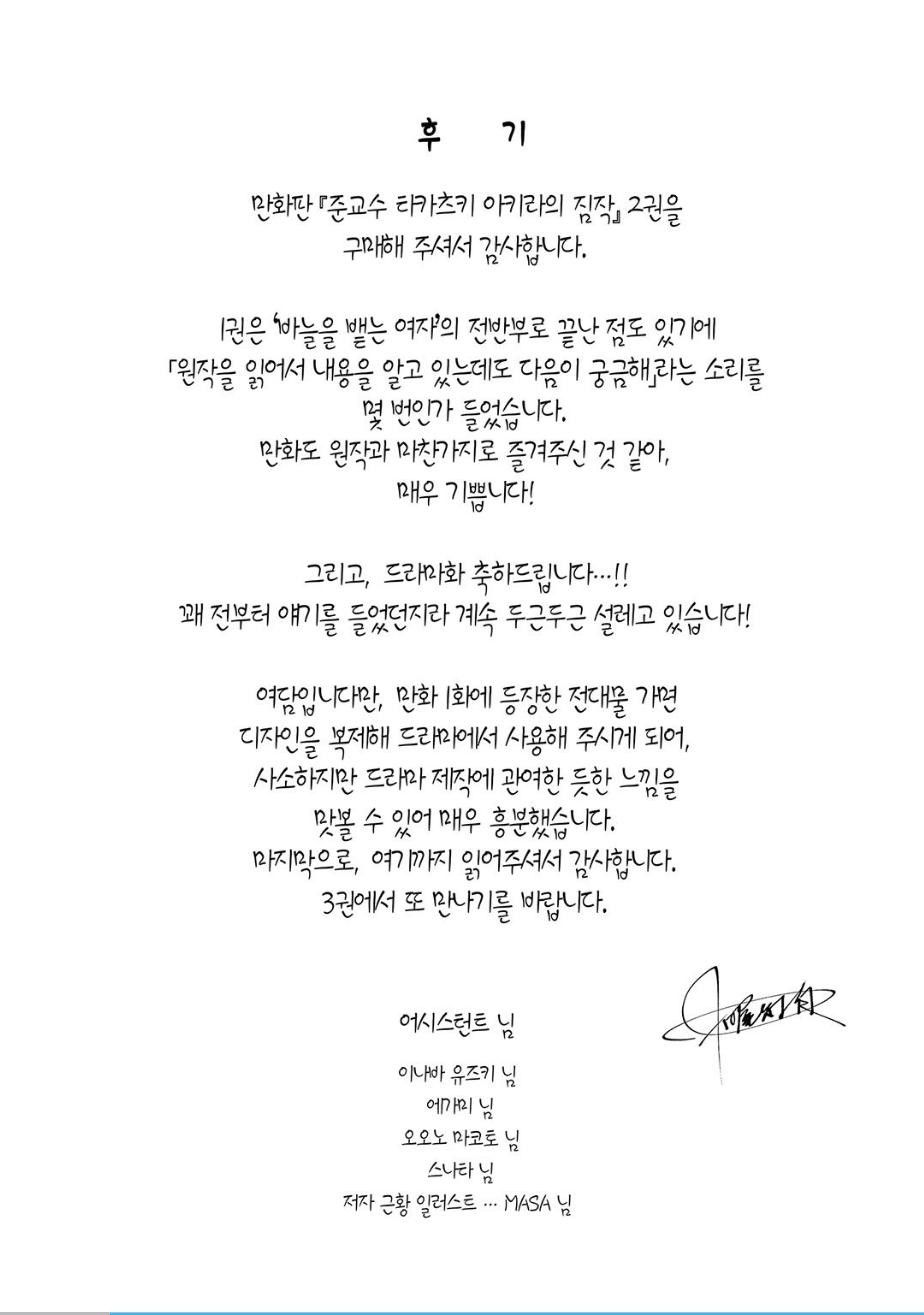 후 기
만화판 『준교수 타카츠키 아키라의 짐작』 2권을
구매해 주셔서 감사합니다.
1권은 '바늘을 뱉는 여자'의 전반부로 끝난 점도 있기에
「원작을 읽어서 내용을 알고 있는데도 다음이 궁금해」라는 소리를
몇 번인가 들었습니다.
만화도 원작과 마찬가지로 즐겨주신 것 같아,
매우 기쁩니다!
그리고, 드라마화 축하드립니다…!!
꽤 전부터 얘기를 들었던지라 계속 두근두근 설레고 있습니다!
여담입니다만, 만화 1화에 등장한 전대물 가면
디자인을 복제해 드라마에서 사용해 주시게 되어,
사소하지만 드라마 제작에 관여한 듯한 느낌을
맛볼 수 있어 매우 흥분했습니다.
마지막으로, 여기까지 읽어주셔서 감사합니다.
3권에서 또 만나기를 바랍니다.
어시스턴트 님
이나바 유즈키 님
에가미 님
오오노 마코토 님
스나타 님
저자 근황 일러스트 … MASA 님